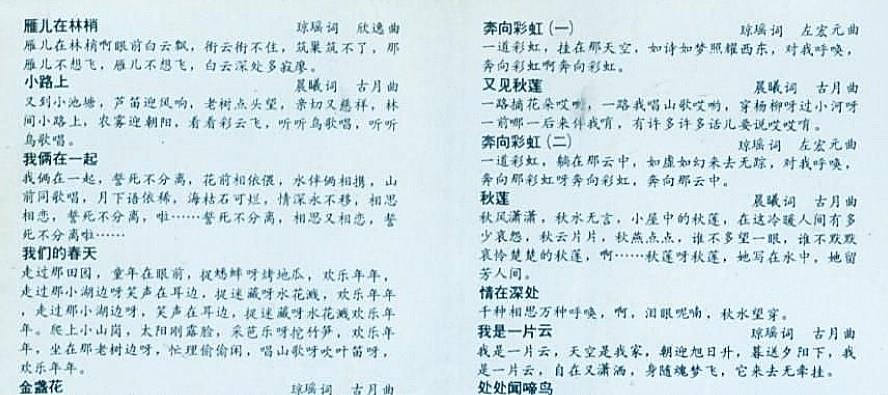 雁儿在林梢 琼瑶词 欣逸曲
雁儿在林梢啊眼前白云飘，衔云衔不住，筑巢筑不了，那
雁儿不想飞，雁儿不想飞，白云深处多寂廖。
小路上 晨曦词 古月曲
又到小池塘，芦笛迎风响，老树点头望，亲切又慈祥，林
间小路上，农雾迎朝阳，看看彩云飞，听听鸟歌唱，听听
鸟歌唱。
我俩在一起
我俩在一起，誓死不分离，花前相依偎，水伴俩相携，山
前同歌唱，月下语依稀，海枯石可烂，情深永不移，相思
相恋，誓死不分离，啦……誓死不分离，相思又相恋，誓
死不分离啦……
我们的春天
走过那田园，童年在眼前，捉蟋蟀呀烤地瓜，欢乐年年，
走过那小湖边呀笑声在耳边，捉迷藏呀水花溅，欢乐年年
，走过那小湖边呀，笑声在耳边，捉迷藏呀水花溅欢乐年
年。爬上小山岗，太阳刚露脸，采芭乐呀挖竹笋，欢乐年
年，坐在那老树边呀，忙理偷偷闲，唱山歌呀吹叶笛呀，
欢乐年年。
金盏花 琼瑶词 古月曲
奔向彩虹（一） 琼瑶词 左宏元曲
一道彩虹，挂在那天空，如诗如梦照耀西东，对我呼唤，
奔向彩虹啊奔向彩虹。
又见秋莲 晨曦词 古月曲
一路摘花朵哎哟，一路我唱山歌哎哟，穿杨柳呀过小河呀
一前哪一后来伴我唷，有许多许多话儿要说哎哎唷。
奔向彩虹（二） 琼瑶词 左宏元曲
一道彩虹，躺在那云中，如虚如幻来去无踪，对我呼唤，
奔向那彩虹呀奔向彩虹，奔向那云中。
秋莲 晨曦词 古月曲
秋风潇潇，秋水无言，小屋中的秋莲，在这冷暖人间有多
少哀怨，秋云片片，秋燕点点，谁不多望一眼，谁不默默
哀怜楚楚的秋莲，啊……秋莲呀秋莲，她写在水中，她留
芳人间。
情在深处
千种相思万种呼唤，啊，泪眼呢喃，秋水望穿。
我是一片云 琼瑶词 古月曲
我是一片云，天空是我家，朝迎旭日升，暮送夕阳下，我
是一片云，自在又潇洒，身随魂梦飞，它来去无牵挂。
处处闻啼鸟